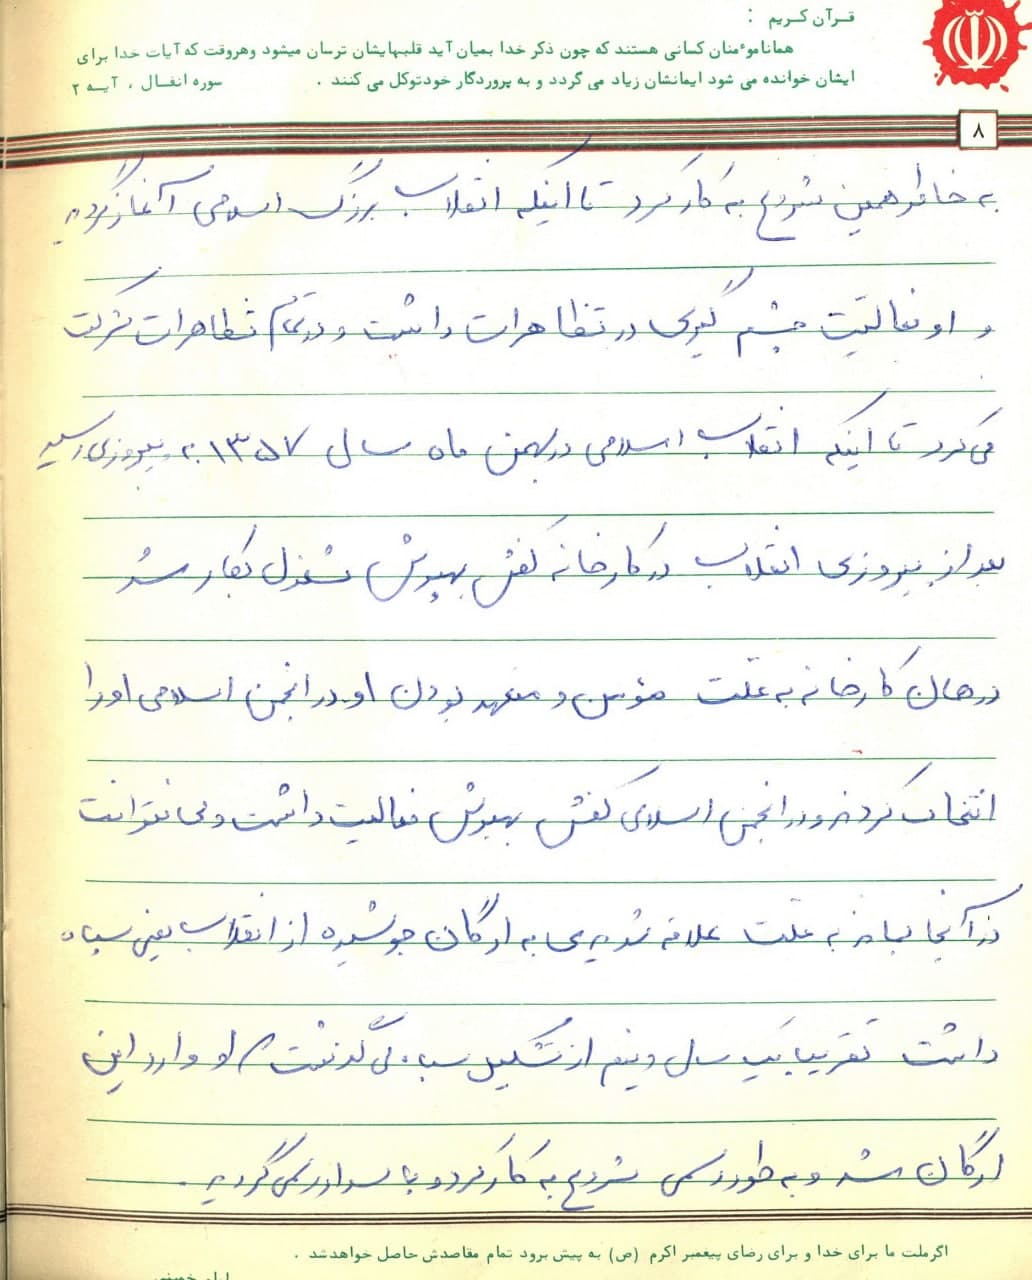 قـرآن کـریم :
همانا موءمنان کسانی هستند که چون ذکر خدا بمیان آید قلبهایشان ترسان میشود وهروقت که آیات خدا برای
ایشان خوانده می شود ایمانشان زیاد می گردد و به پروردگار خودتوکل می کنند . سوره انفـال ، آیـه ۲
۸
به خاطر همین شروع به کار کرد تا اینکه انقلاب بزرگ اسلامی آغاز گردید
و او فعالیت چشم گیری در تظاهرات داشت و در تمام تظاهرات شرکت
می کرد تا اینکه انقلاب اسلامی در بهمن ماه سال ۱۳۵۷ به پیروزی رسید
بعد از پیروزی انقلاب در کارخانه کفش بهپوش مشغول بکار شد
در همان کارخانه به علت مؤمن و متعهد بودن او در انجمن اسلامی او را
انتخاب کردند و در انجمن اسلامی کفش بهپوش فعالیت داشت ولی نتوانست
در آنجا بماند به علت علاقه شدیدی به ارگان جوشیده از انقلاب یعنی سپاه
داشت تقریبا یک سال و نیم از تشکیل سپاه می گذشت او وارد این
ارگان شد و به طور رسمی شروع به کار کرد و پاسدار رسمی گردید .
اگرملت ما برای خدا و برای رضای پیغمبر اکرم (ص) به پیش برود تمام مقاصدش حاصل خواهدشد .
امام خمینی